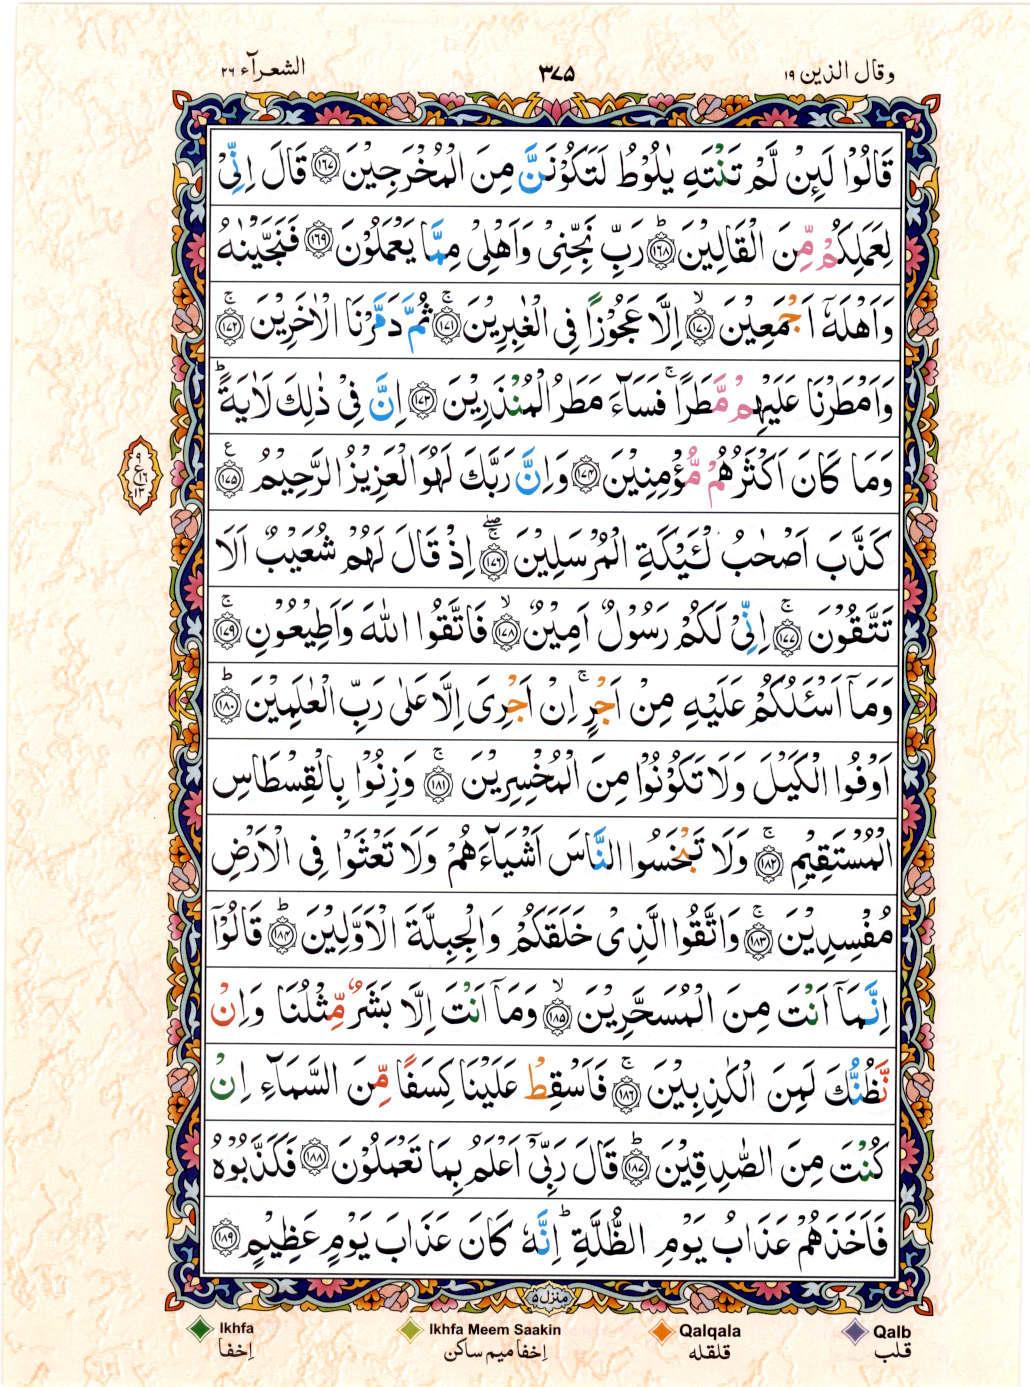 وقال الذين ١٩ ٣٧٥ الشعرآء ٢٦
قَالُوۡا لَئِنۡ لَّمۡ تَنۡتَهِ يٰلُوۡطُ لَتَكُوۡنَنَّ مِنَ الۡمُخۡرَجِيۡنَ ﴿۱۶۷﴾ قَالَ اِنِّىۡ
لِعَمَلِكُمۡ مِّنَ الۡقَالِيۡنَؕ ﴿۱۶۸﴾ رَبِّ نَجِّنِىۡ وَاَهۡلِىۡ مِمَّا يَعۡمَلُوۡنَ ﴿۱۶۹﴾ فَنَجَّيۡنٰهُ
وَاَهۡلَهٗۤ اَجۡمَعِيۡنَۙ ﴿۱۷۰﴾ اِلَّا عَجُوۡزًا فِى الۡغٰبِرِيۡنَۚ ﴿۱۷۱﴾ ثُمَّ دَمَّرۡنَا الۡاٰخَرِيۡنَۚ ﴿۱۷۲﴾
وَاَمۡطَرۡنَا عَلَيۡهِمۡ مَّطَرًاۚ فَسَآءَ مَطَرُ الۡمُنۡذَرِيۡنَ ﴿۱۷۳﴾ اِنَّ فِىۡ ذٰلِكَ لَاٰيَةًؕ
وَمَا كَانَ اَكۡثَرُهُمۡ مُّؤۡمِنِيۡنَ ﴿۱۷۴﴾ وَاِنَّ رَبَّكَ لَهُوَ الۡعَزِيۡزُ الرَّحِيۡمُ ﴿۱۷۵﴾ ع
۹
ع ۱۶
۱۳
كَذَّبَ اَصۡحٰبُ لْئَيۡكَةِ الۡمُرۡسَلِيۡنَ ۖۚ ﴿۱۷۶﴾ اِذۡ قَالَ لَهُمۡ شُعَيۡبٌ اَلَا
تَتَّقُوۡنَۚ ﴿۱۷۷﴾ اِنِّىۡ لَكُمۡ رَسُوۡلٌ اَمِيۡنٌۙ ﴿۱۷۸﴾ فَاتَّقُوا اللّٰهَ وَاَطِيۡعُوۡنِۚ ﴿۱۷۹﴾
وَمَاۤ اَسۡئَلُكُمۡ عَلَيۡهِ مِنۡ اَجۡرٍۚ اِنۡ اَجۡرِىَ اِلَّا عَلٰى رَبِّ الۡعٰلَمِيۡنَؕ ﴿۱۸۰﴾
اَوۡفُوا الۡكَيۡلَ وَلَا تَكُوۡنُوۡا مِنَ الۡمُخۡسِرِيۡنَۚ ﴿۱۸۱﴾ وَزِنُوۡا بِالۡقِسۡطَاسِ
الۡمُسۡتَقِيۡمِۚ ﴿۱۸۲﴾ وَلَا تَبۡخَسُوا النَّاسَ اَشۡيَآءَهُمۡ وَلَا تَعۡثَوۡا فِى الۡاَرۡضِ
مُفۡسِدِيۡنَۚ ﴿۱۸۳﴾ وَاتَّقُوا الَّذِىۡ خَلَقَكُمۡ وَالۡجِبِلَّةَ الۡاَوَّلِيۡنَؕ ﴿۱۸۴﴾ قَالُوۡۤا
اِنَّمَاۤ اَنۡتَ مِنَ الۡمُسَحَّرِيۡنَۙ ﴿۱۸۵﴾ وَمَاۤ اَنۡتَ اِلَّا بَشَرٌ مِّثۡلُنَا وَاِنۡ
نَّظُنُّكَ لَمِنَ الۡكٰذِبِيۡنَۚ ﴿۱۸۶﴾ فَاَسۡقِطۡ عَلَيۡنَا كِسَفًا مِّنَ السَّمَآءِ اِنۡ
كُنۡتَ مِنَ الصّٰدِقِيۡنَؕ ﴿۱۸۷﴾ قَالَ رَبِّىۡۤ اَعۡلَمُ بِمَا تَعۡمَلُوۡنَ ﴿۱۸۸﴾ فَكَذَّبُوۡهُ
فَاَخَذَهُمۡ عَذَابُ يَوۡمِ الظُّلَّةِؕ اِنَّهٗ كَانَ عَذَابَ يَوۡمٍ عَظِيۡمٍ ﴿۱۸۹﴾
منزل ۵
Ikhfa Ikhfa Meem Saakin Qalqala Qalb
اِخفا اِخفا میم ساکن قلقله قلب